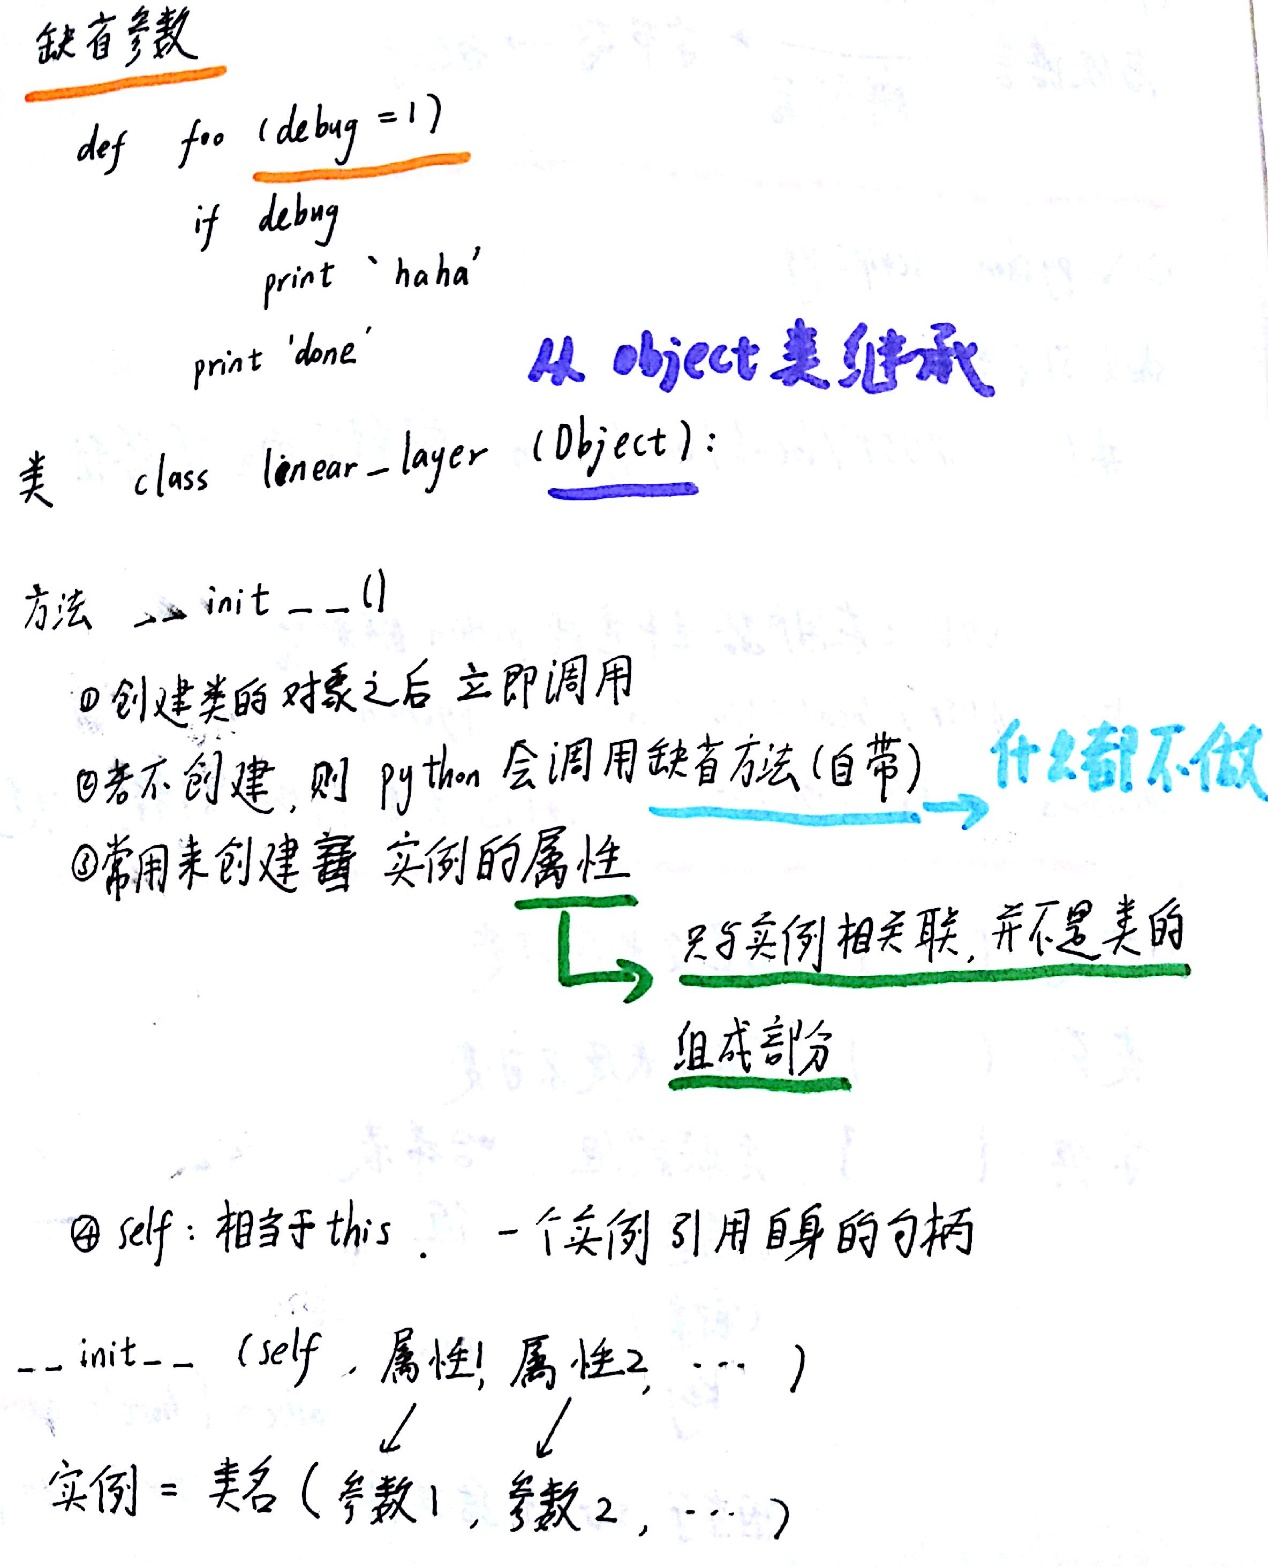 缺省参数
def foo (debug = 1)
if debug
print 'haha'
print 'done'
从 object 类继承
类 class linear_layer (Object):
方法 __init__()
①创建类的对象之后 立即调用
②若不创建,则 python 会调用缺省方法(自带) → 什么都不做
③常用来创建 实例的属性
只与实例相关联,并不是类的
组成部分
④ self: 相当于 this. 一个实例引用自身的句柄
__init__ (self, 属性1, 属性2, ...)
实例 = 类名 (参数1, 参数2, ...)